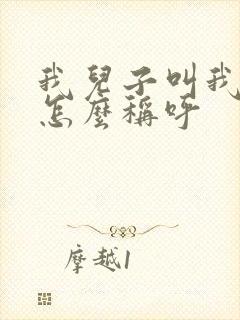 我兒子叫我
怎麼稱呼
摩越1